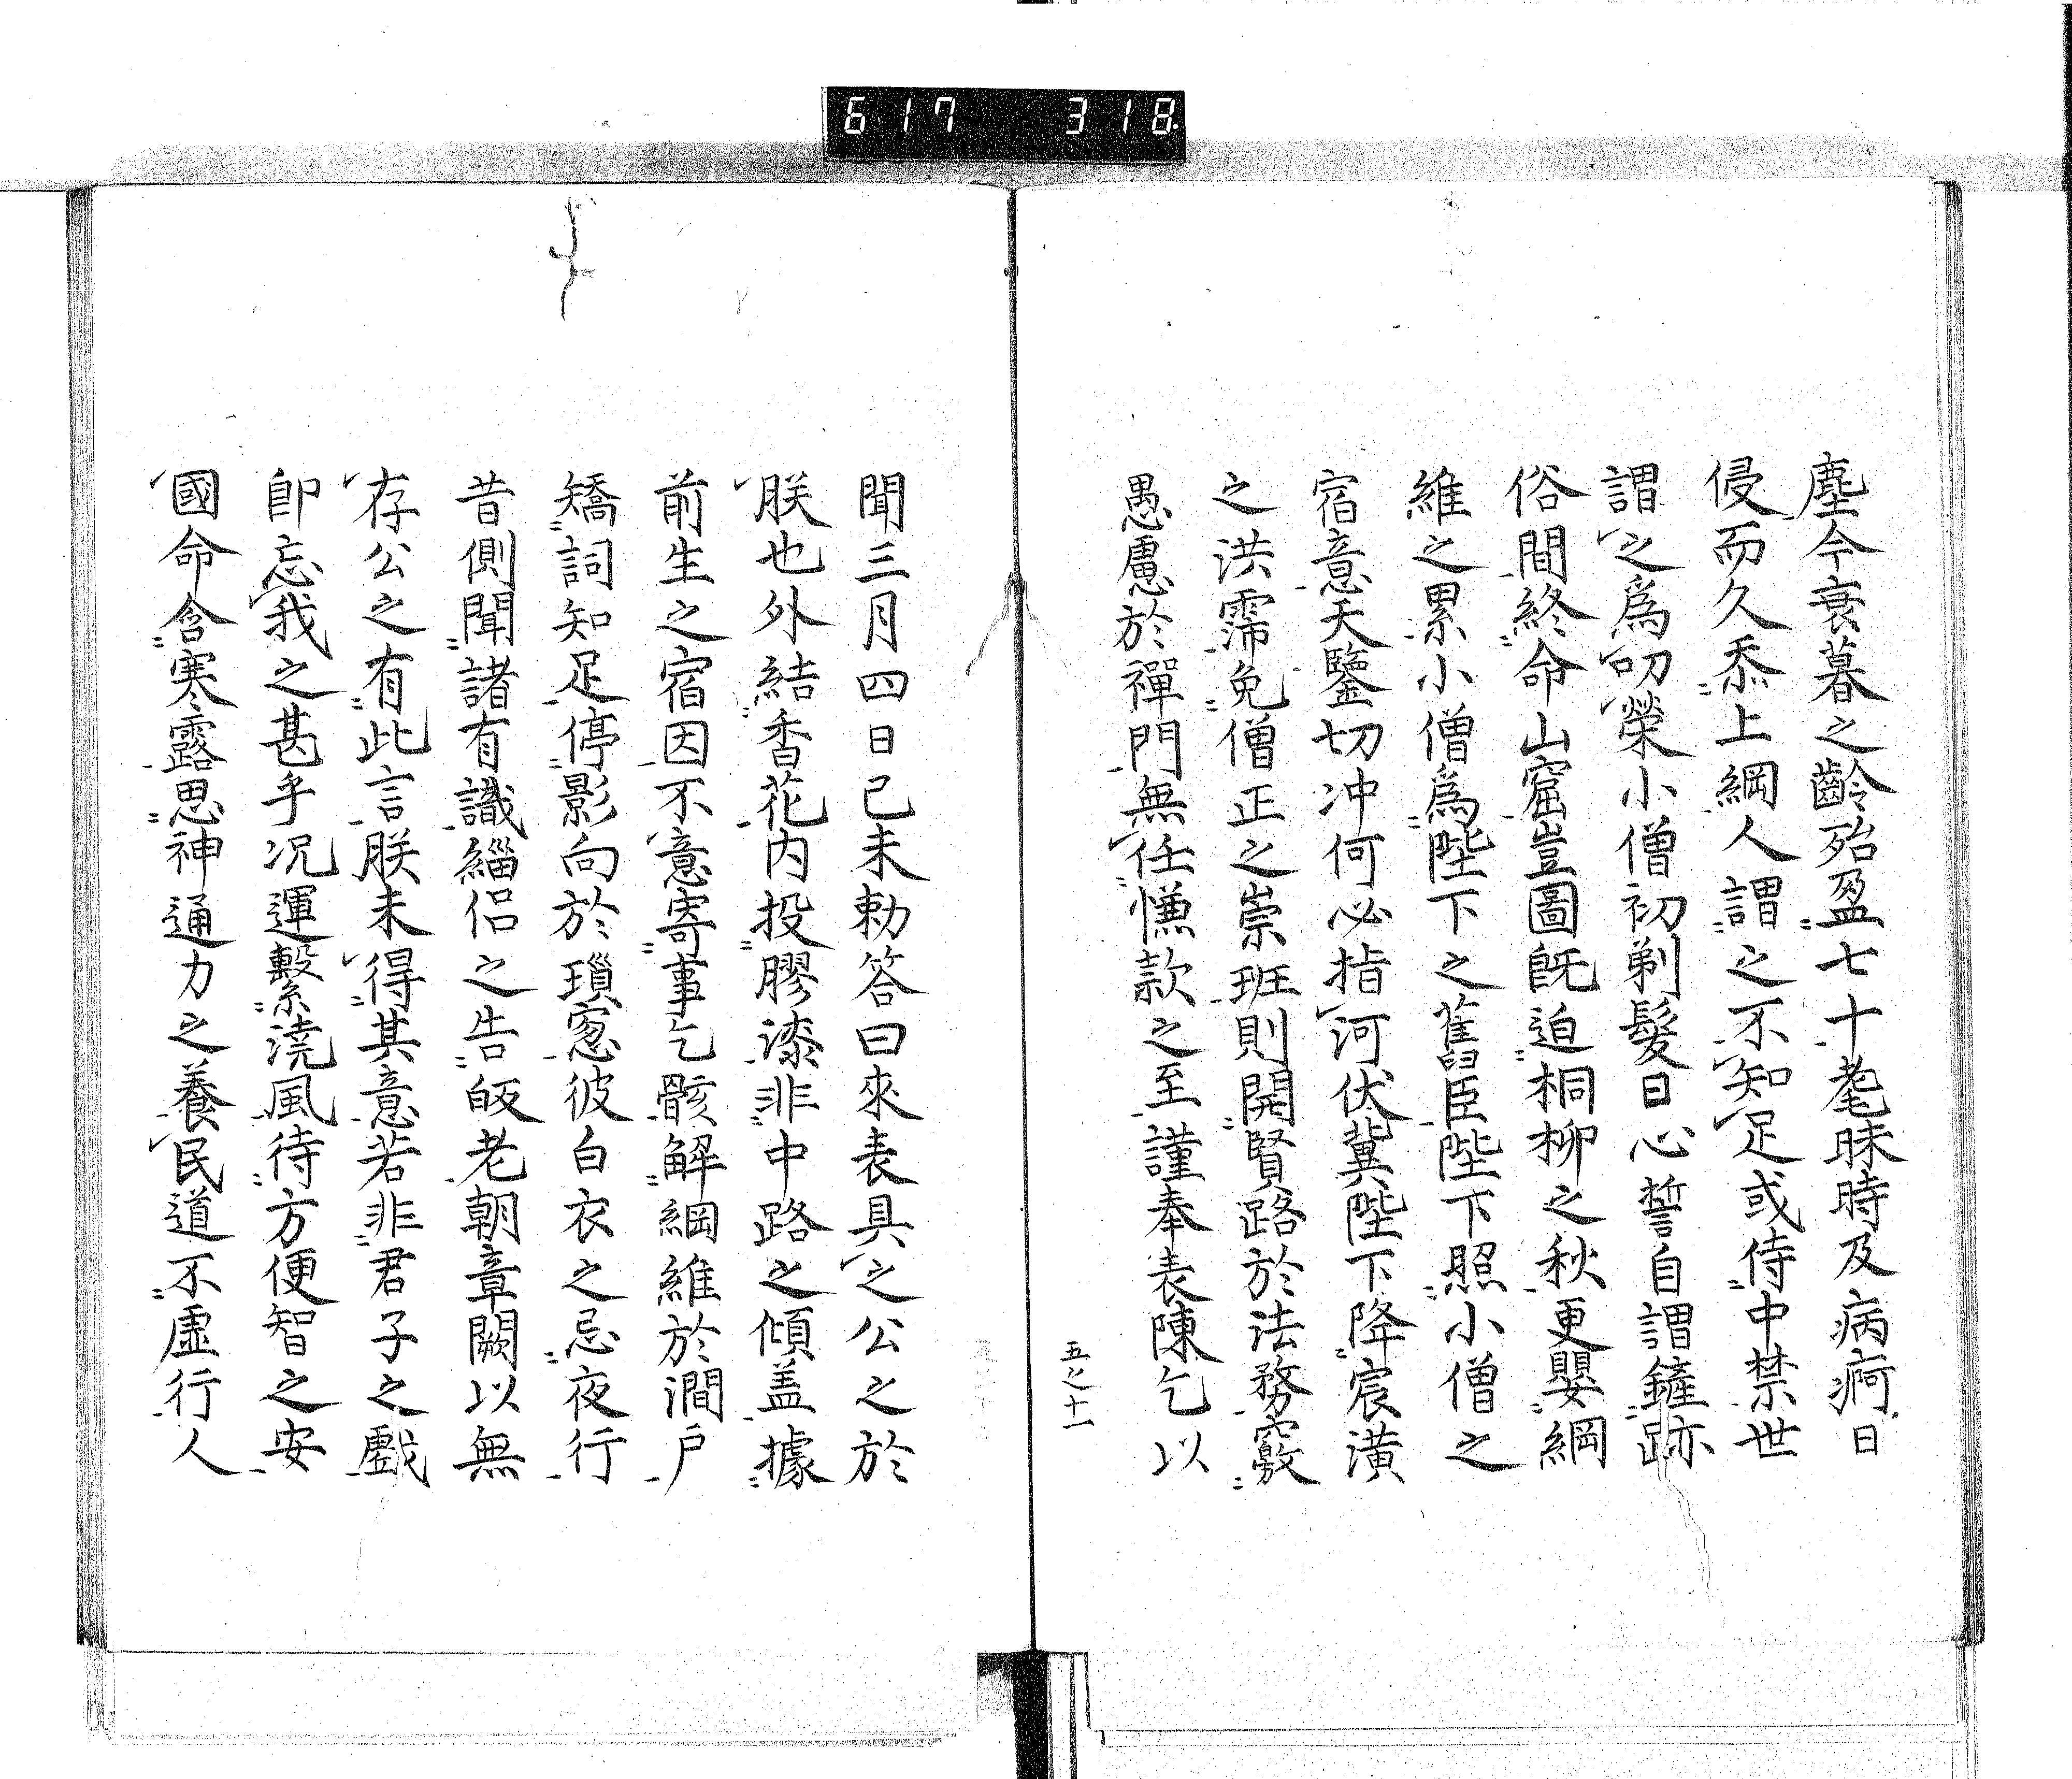 617 318
塵今衰暮之齡殆盈七十耄昧時及病痾日
侵而久忝上綱人謂之不知足或侍中禁世
謂之爲叨榮小僧初剃髮日心誓自謂鏟跡
俗間終命山窟豈圖既迫桐柳之秋更嬰綱
維之累小僧爲陛下之舊臣陛下照小僧之
宿意天鑒切冲何必指河伏冀陛下降宸潢
之洪霈免僧正之崇班則開賢路於法務竅
愚慮於禪門無任慊款之至謹奉表陳乞以
五之十一
聞三月四日已未勅答曰來表具之公之於
朕也外結香花内投膠漆非中路之傾盖據
前生之宿因不意寄事乞骸解綱維於澗戶
矯詞知足停影向於瑣窓彼白衣之忌夜行
昔側聞諸有識緇侶之告皈老朝章闕以無
存公之有此言朕未得其意若非君子之戲
卽忘我之甚乎况運繫澆風待方便智之安
國命含寒露思神通力之養民道不虛行人